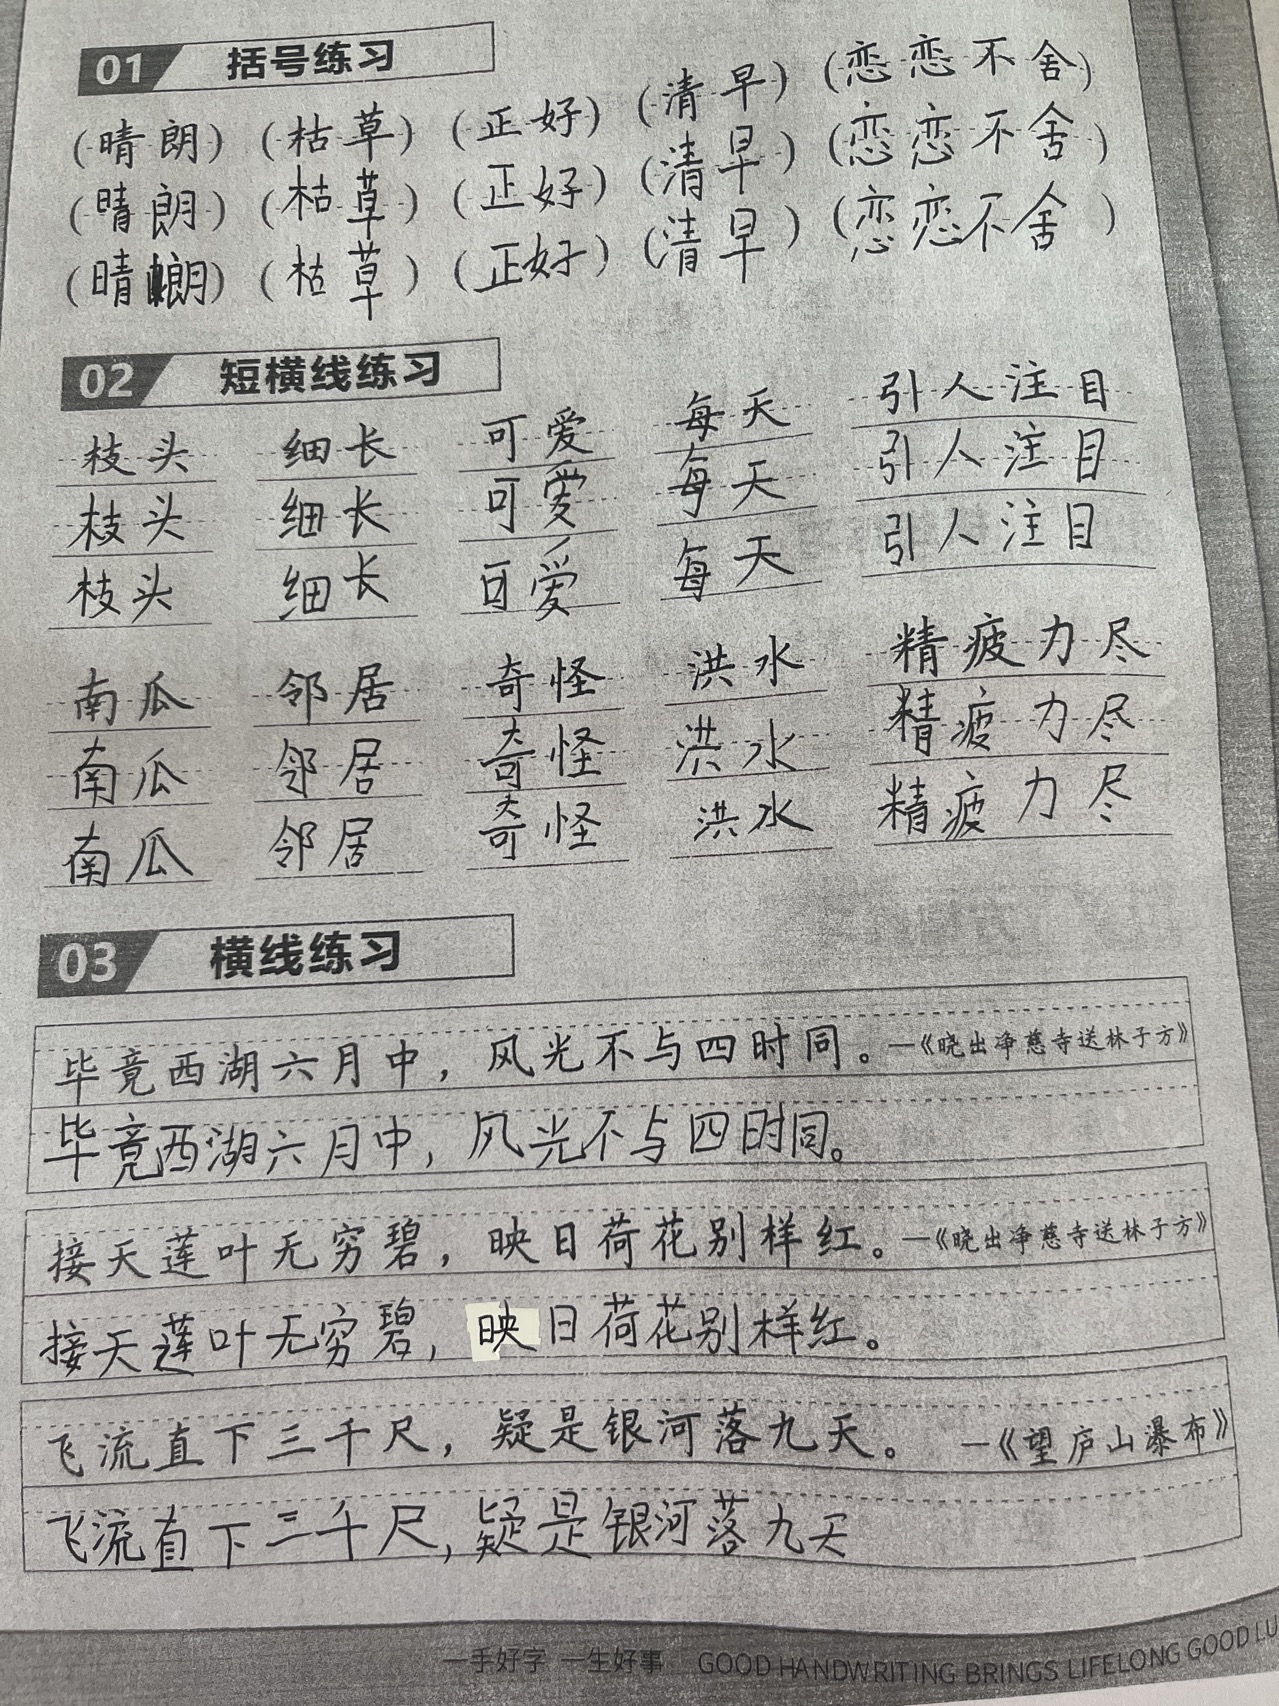 01 括号练习
(晴朗) (枯草) (正好) (清早) (恋恋不舍)
(晴朗) (枯草) (正好) (清早) (恋恋不舍)
(晴朗) (枯草) (正好) (清早) (恋恋不舍)
02 短横线练习
枝头 细长 可爱 每天 引人注目
枝头 细长 可爱 每天 引人注目
枝头 细长 可爱 每天 引人注目
南瓜 邻居 奇怪 洪水 精疲力尽
南瓜 邻居 奇怪 洪水 精疲力尽
南瓜 邻居 奇怪 洪水 精疲力尽
03 横线练习
毕竟西湖六月中，风光不与四时同。—《晓出净慈寺送林子方》
毕竟西湖六月中，风光不与四时同。
接天莲叶无穷碧，映日荷花别样红。—《晓出净慈寺送林子方》
接天莲叶无穷碧，映日荷花别样红。
飞流直下三千尺，疑是银河落九天。—《望庐山瀑布》
飞流直下三千尺，疑是银河落九天
一手好字 一生好事 GOOD HANDWRITING BRINGS LIFELONG GOOD LU